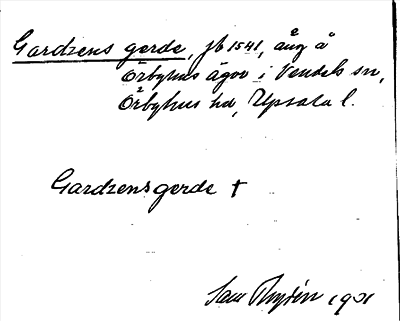 Gardzens gerde, jb 1541, äng å
Örbyhus ägor i Vendels sn,
Örbyhus hd, Upsala l.
Gardzensgerde †
Sam 1901